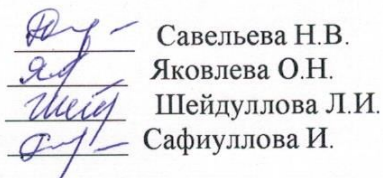 Савельева Н.В.
Яковлева О.Н.
Шейдуллова Л.И.
Сафиуллова И.